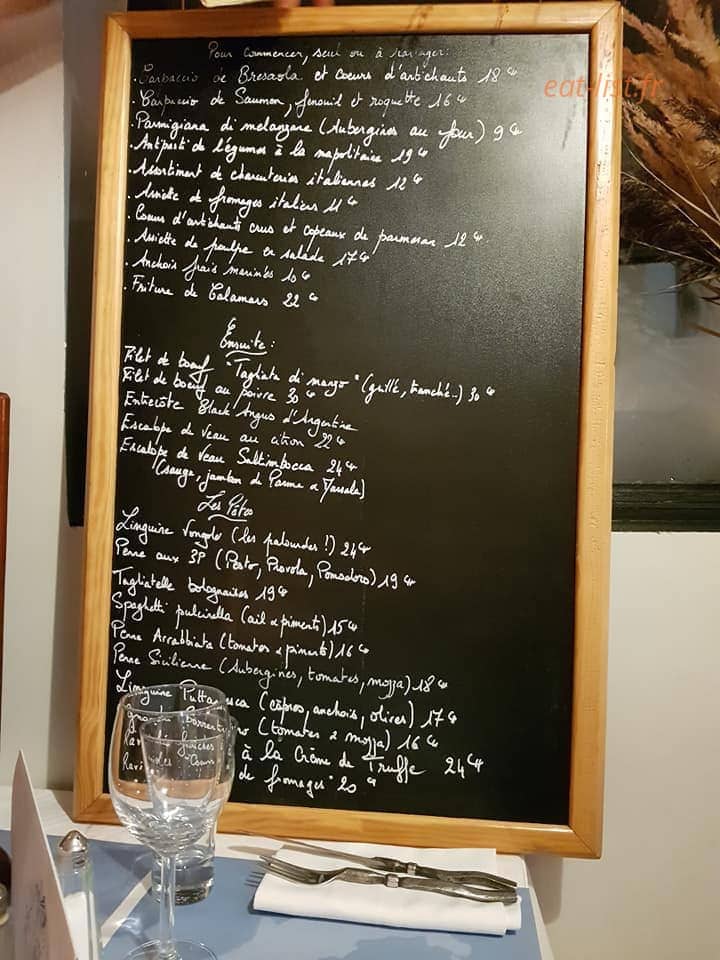 Pour commencer, seul ou à partager:
. Carpaccio de Bresaola et Coeurs d'artichauts 18 €
. Carpaccio de Saumon, fenouil et roquette 16 €
. Parmigiana di melanzane (Aubergines au four) 9 €
. Antipasti de légumes à la napolitaine 19 €
. Assortiment de charcuteries italiennes 12 €
. Assiette de fromages italiens 11 €
. Coeurs d'artichauts crus et copeaux de parmesan 12 €
. Assiette de poulpe en salade 17 €
. Anchois frais marinés 10 €
. Friture de Calamars 22 €
Ensuite:
Filet de boeuf "Tagliata di manzo" (grillé, tranché..) 30 €
Filet de boeuf au poivre 30 €
Entrecôte Black Angus d'Argentine
Escalope de veau au citron 22 €
Escalope de veau Saltimbocca 24 €
(sauge, jambon de Parme & Marsala)
Les Pâtes
Linguine Vongole (les palourdes!) 24 €
Penne aux 3P (Pesto, Provola, Pomodoro) 19 €
Tagliatelle bolognaises 19 €
Spaghetti pulcinella (ail & piments) 15 €
Penne Arrabbiata (tomates & piments) 16 €
Penne Sicilienne (Aubergines, tomates, mozza) 18 €
Linguine Puttanesca (câpres, anchois, olives) 17 €
(tomates & mozza) 16 €
fraîches à la Crème de Truffe 24 €
de fromages" 20 €
eat-list.fr